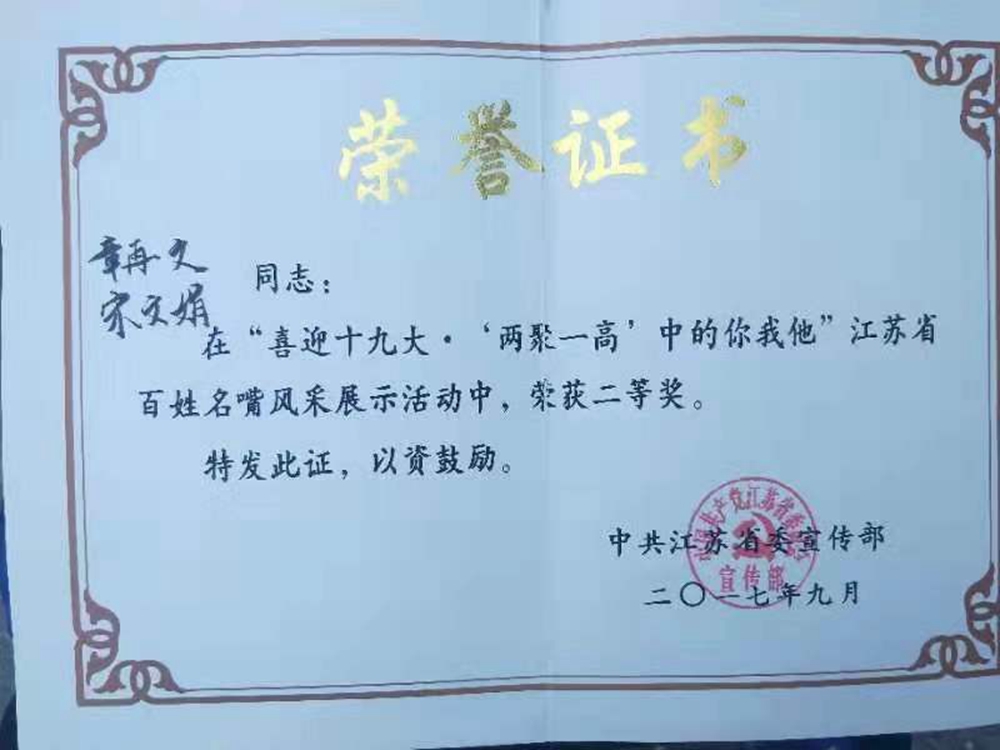 荣誉证书
章再文
宋文娟
同志：
在“喜迎十九大·‘两聚一高’中的你我他”江苏省
百姓名嘴风采展示活动中，荣获二等奖。
特发此证，以资鼓励。
中共江苏省委宣传部
二〇一七年九月
中国共产党江苏省委员会
宣传部